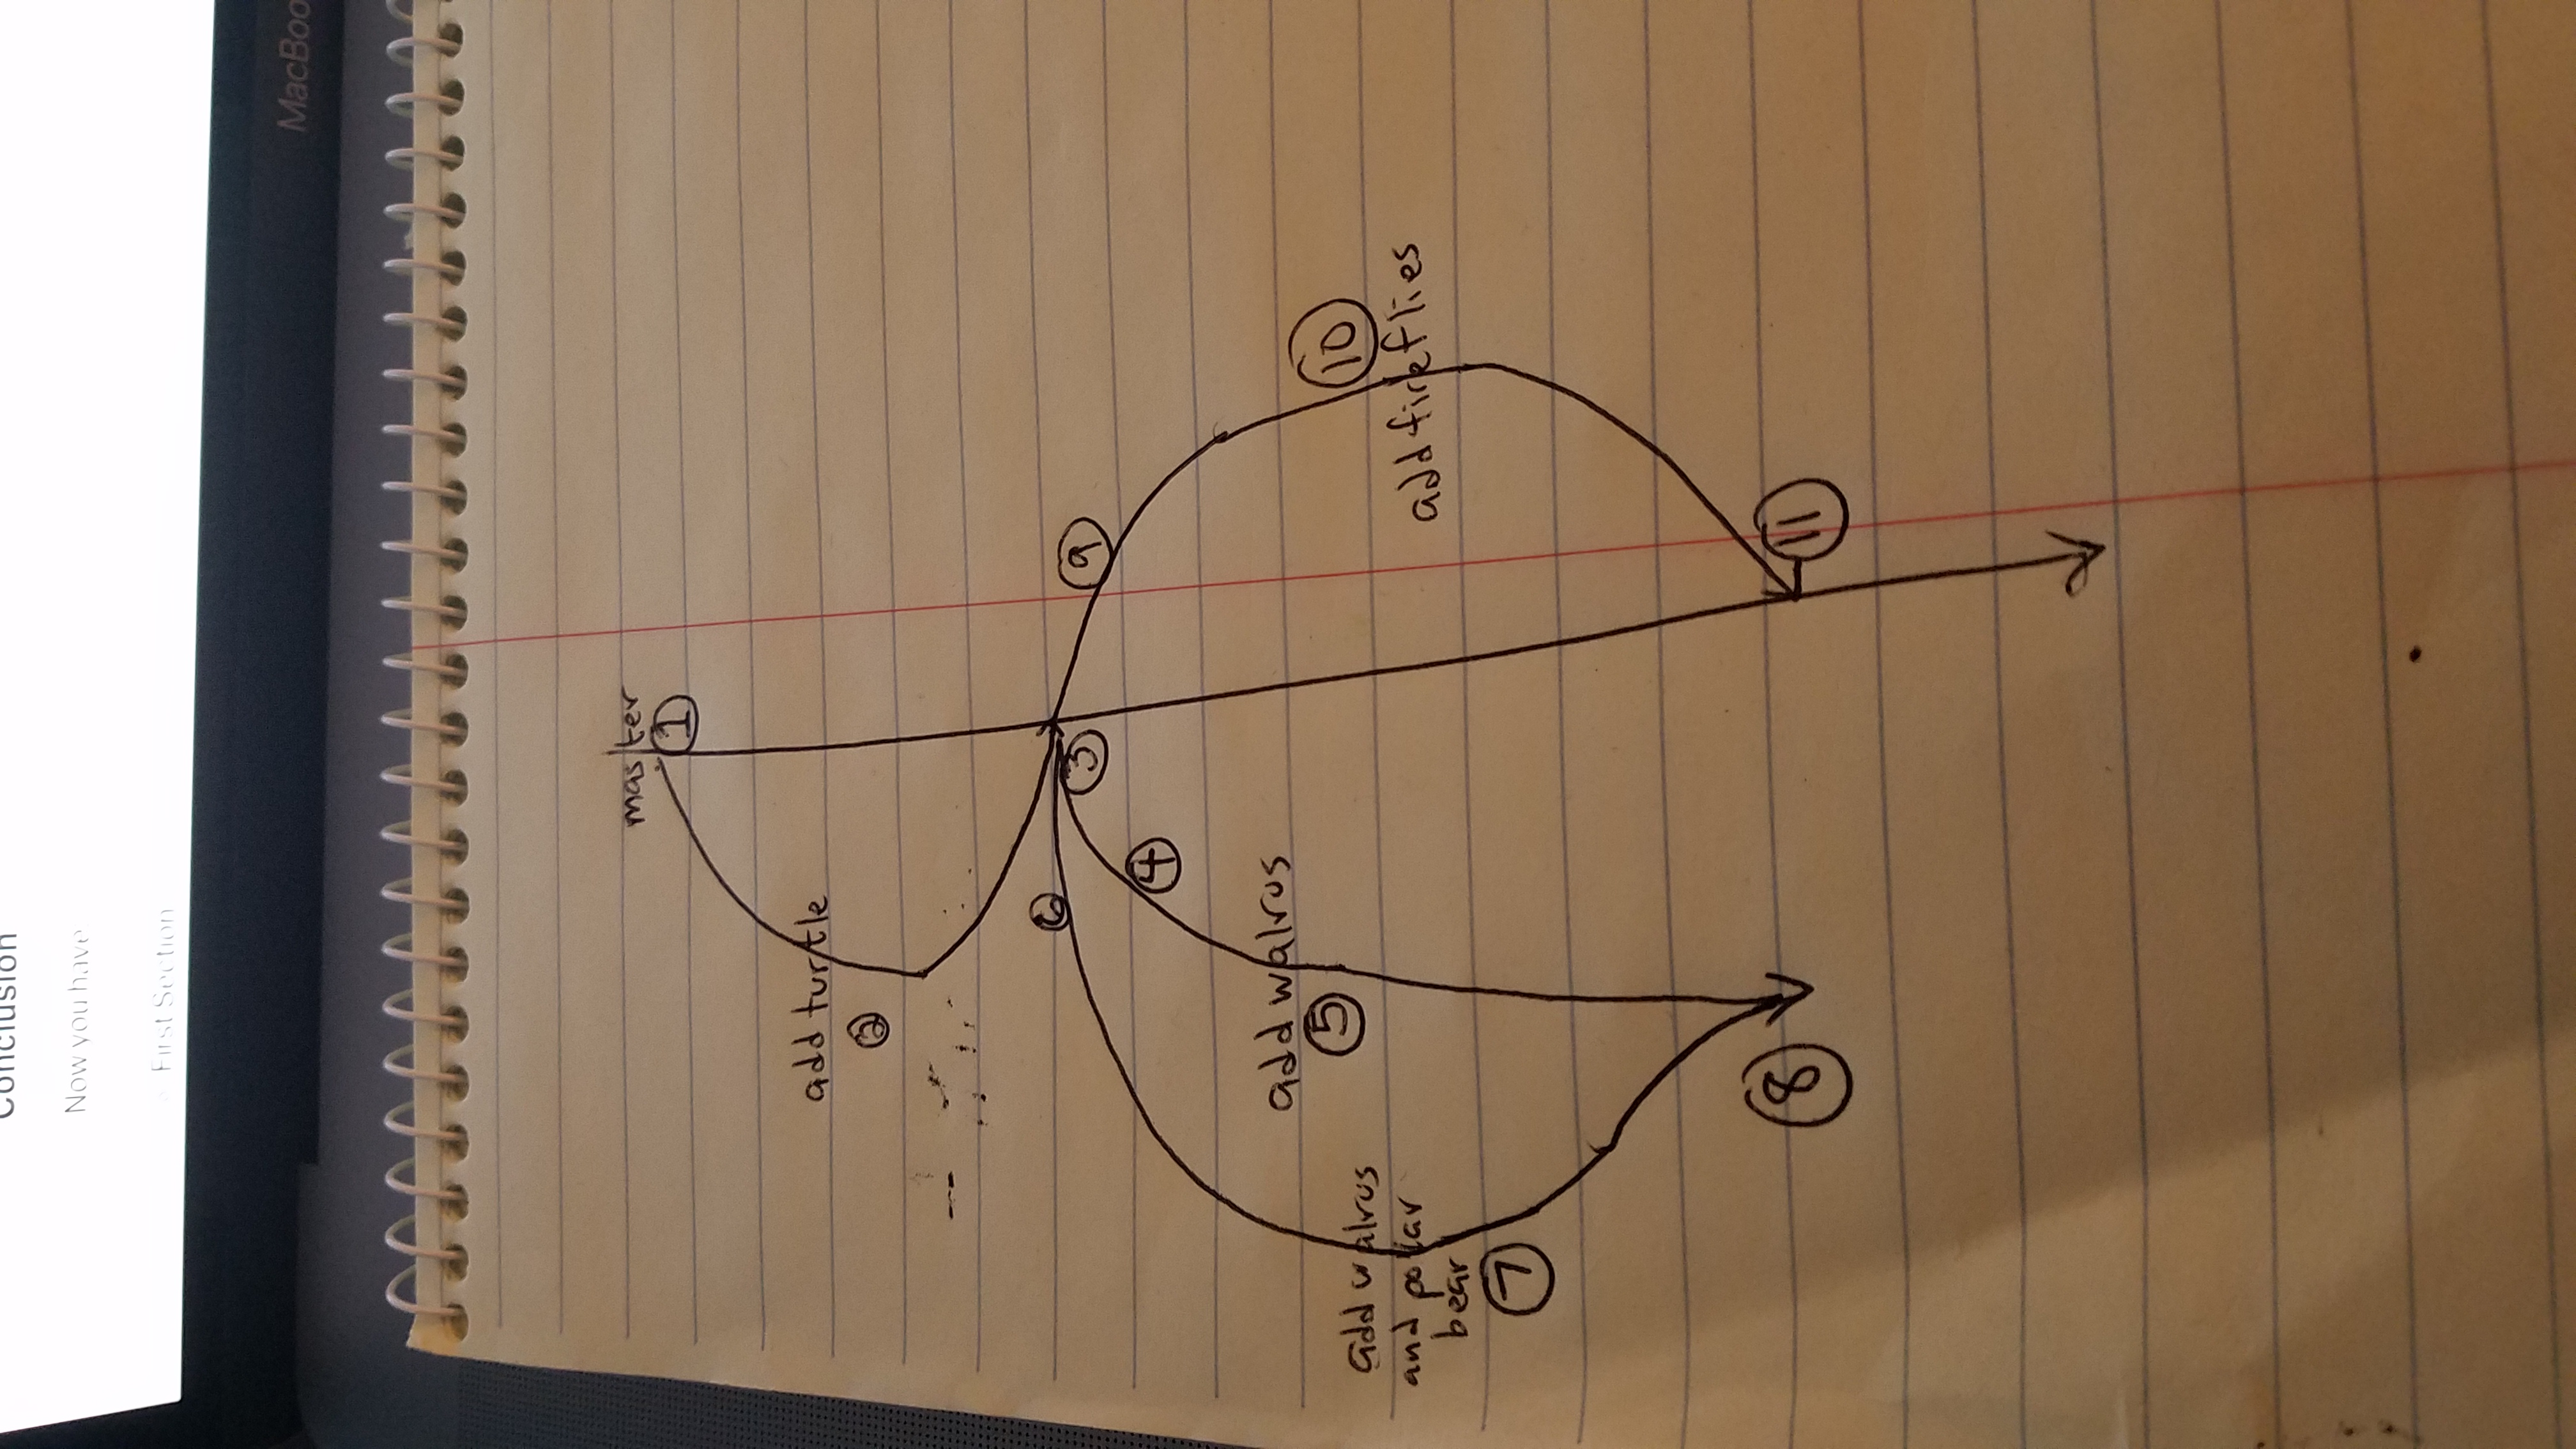 Conclusion
Now you have
First Section
MacBoo
master
1
add turtle
2
6
3
9
4
add walrus
5
10
add walrus
and polar
bear
add fireflies
7
8
11